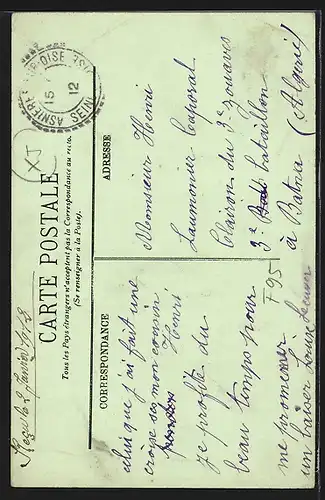 CARTE POSTALE
Tous les Pays étrangers n'acceptent pas la Correspondance au recto.
(Se renseigner à la Poste).
CORRESPONDANCE
ADRESSE
ainsi que j'ai fait une
croise sur mon cousin
Henri
je profite du
beau temps pour
me promener
un baiser Louise
Monsieur Henri
Laumonier Caporal
Clairon du 3e zouaves
3e bataillon
à Batna (Algérie)
F95
XJ
ASNIERES SEINE
15 12